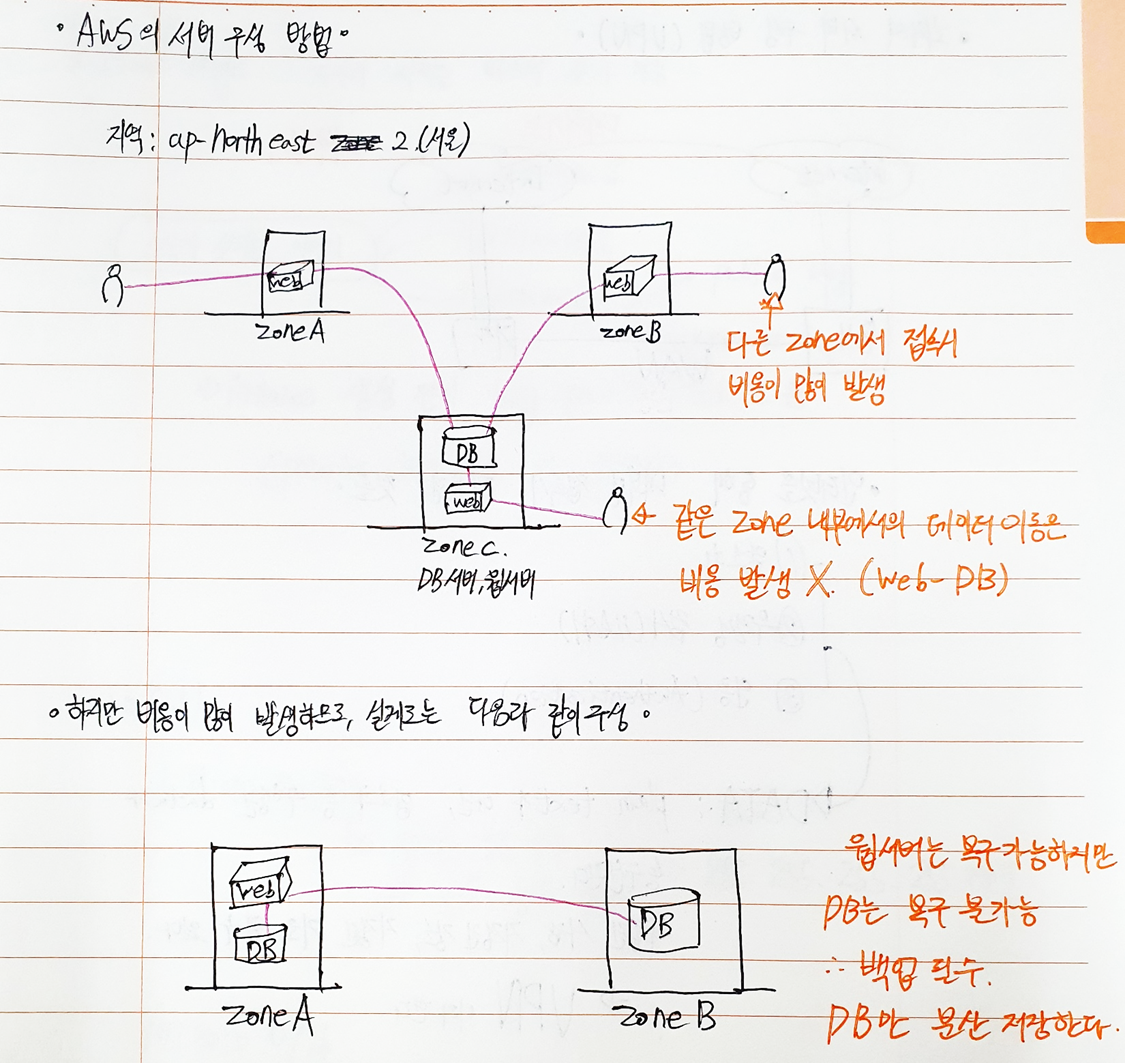 • AWS의 서버 구성 방법•
지역: ap-north east 2.(서울)
web
zone A
web
zone B
다른 zone에서 접속시
비용이 많이 발생
DB
web
zone C.
DB서버, 웹서버
같은 zone 내부에서의 데이터 이동은
비용 발생 X. (web-DB)
• 하지만 비용이 많이 발생하므로, 실제로는 다음과 같이 구성 •
web
DB
zone A
DB
zone B
웹서버는 복구 가능하지만
DB는 복구 불가능
∴ 백업 필수.
DB만 분산 저장한다.